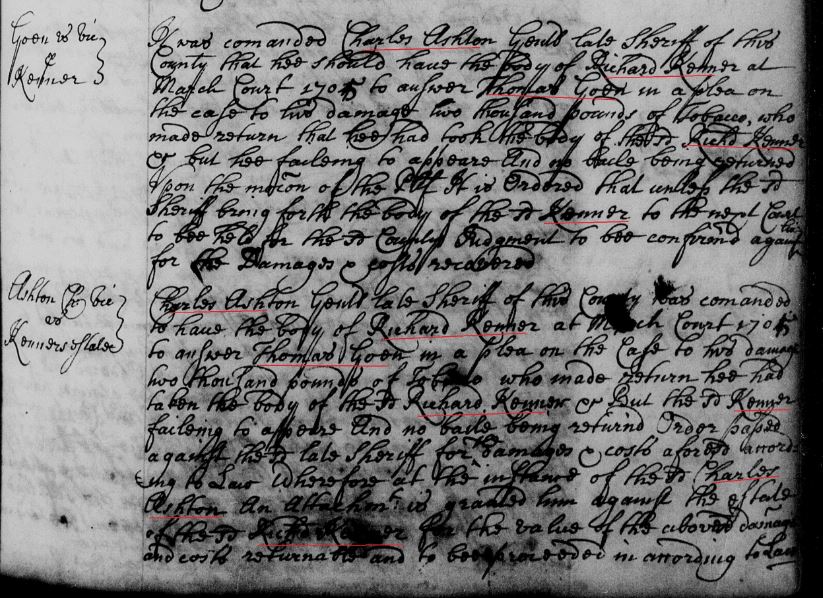 Goen vs Vic
&
Kenner
It was comanded Charles Ashton Gentl late Sheriff of this
County that hee should have the body of Richard Kenner at
March Court 1704/5 to answer Thomas Goen in a plea on
the case to his damage two thousand pounds of Tobacco, who
made return that hee had took the body of the sd Richd Kenner
& but hee faileing to appeare And no baile being returned
Upon the mocon of the Plt It is Ordered that unless the sd
Sheriff bring forth the body of the sd Kenner to the next Court
to bee held for the sd County Judgment to bee confirmd against
for the Damages & costs recovered
Ashton Ch Vic
vs
Kenners estate
Charles Ashton Gentl late Sheriff of this County was comanded
to have the body of Richard Kenner at March Court 1704/5
to answer Thomas Goen in a plea on the Case to his damage
two thousand pounds of Tobacco who made return hee had
taken the body of the sd Richard Kenner & But the sd Kenner
faileing to appeare And no baile being returnd Order passed
against the sd late Sheriff for the damages & costs aforesd accord-
ing to Law Wherefore at the instance of the sd Charles
Ashton An Attachmt is granted him against the estate
of the sd Richd Kenner for the value of the abovesd damage
and costs returnable and to bee proceeded in according to Law